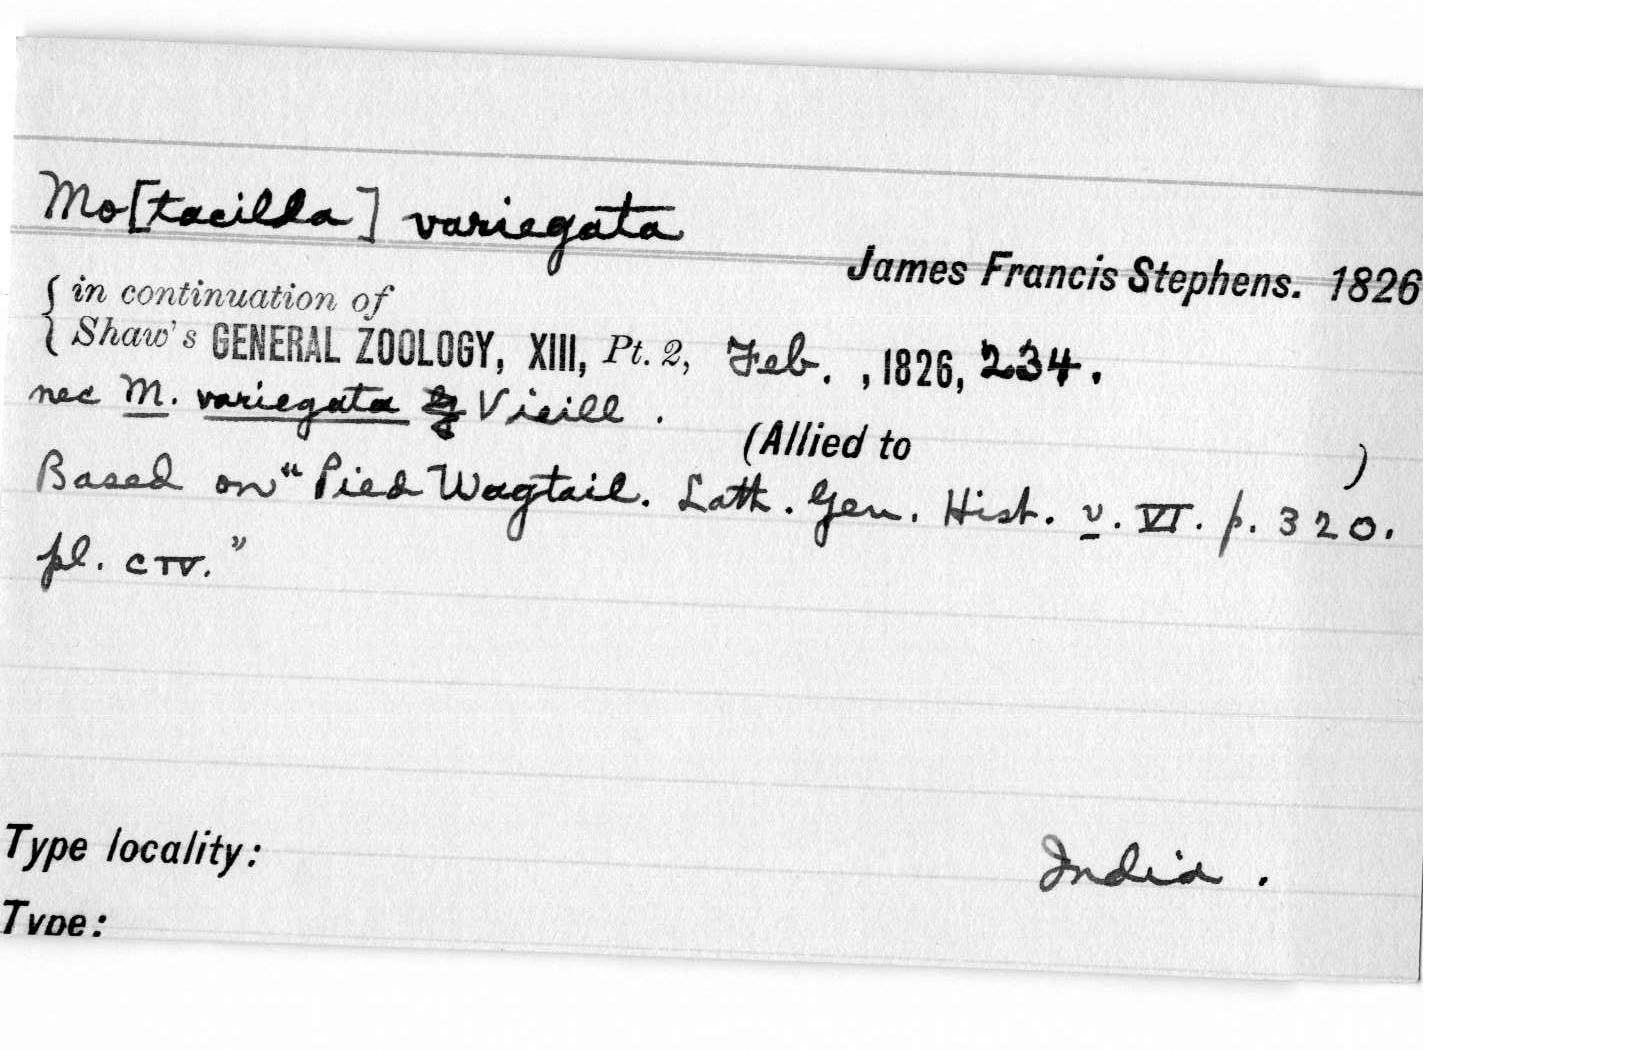 Mo[tacilla] variegata
James Francis Stephens. 1826
{ in continuation of
Shaw's GENERAL ZOOLOGY, XIII, Pt. 2, Feb. , 1826, 234.
nec M. variegata Vieill .
(Allied to )
Based on "Pied Wagtail. Lath. Gen. Hist. v. VI. p. 320.
pl. CIV."
Type locality: India .
Type: